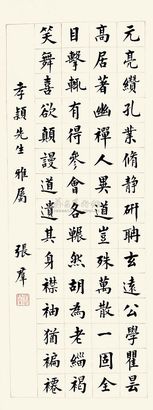 元亮纘孔業脩静研聃玄遠公學瞿曇
高居著幽禪人異道豈殊萬散一固全
目擊輒有得參會各囅然胡為老緇褐
笑舞喜欲顛謾道遺其身襟袖猶褊褼
孝穎先生雅屬
張羣